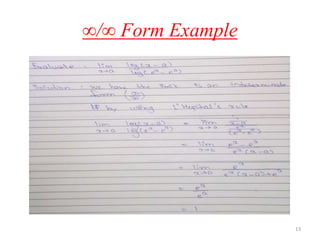 ∞/∞ Form Example
Evaluate : lim x→a log(x-a) / log(eˣ-eᵃ)
Solution : we have like that is an indeterminate
form (∞/∞)
by using L'Hopital's rule
lim x→a log(x-a) / log(eˣ-eᵃ) = lim x→a (1/(x-a)) / (eˣ/(eˣ-eᵃ))
= lim x→a (eˣ-eᵃ) / (eˣ(x-a))
= lim x→a eˣ / (eˣ(x-a)+eˣ)
= eᵃ / eᵃ
= 1
13